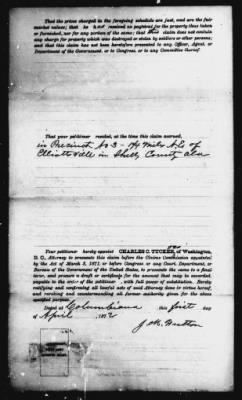 That the prices charged in the foregoing schedule are just, and are the fair
market values; that he has received no payment for the property thus taken
or furnished, nor for any portion of the same; that this claim does not contain
any charge for property which was destroyed or stolen by soldiers or other persons;
and that this claim has not been heretofore presented to any Officer, Agent, or
Department of the Government, or to Congress, or to any Committee thereof.
That your petitioner resided, at the time this claim accrued,
in Precinct No 3 - Miles of
in Shelby County Ala
Your petitioner hereby appoint CHARLES C. TUCKER, of Washington,
D. C., Attorney to prosecute this claim before the Claims Commission appointed
by the Act of March 3, 1871, or before Congress or any Court, Department, or
Bureau of the Government of the United States, to prosecute the same to a final
issue, and procure a draft or certificate for the amount that may be awarded,
payable to the order of the petitioner, with full power of substitution. Hereby
ratifying and confirming all lawful acts of said Attorney done in virtue hereof,
and revoking and countermanding all former authority given for the above
specified purpose.
Dated at Columbiana this first day
of April 1872